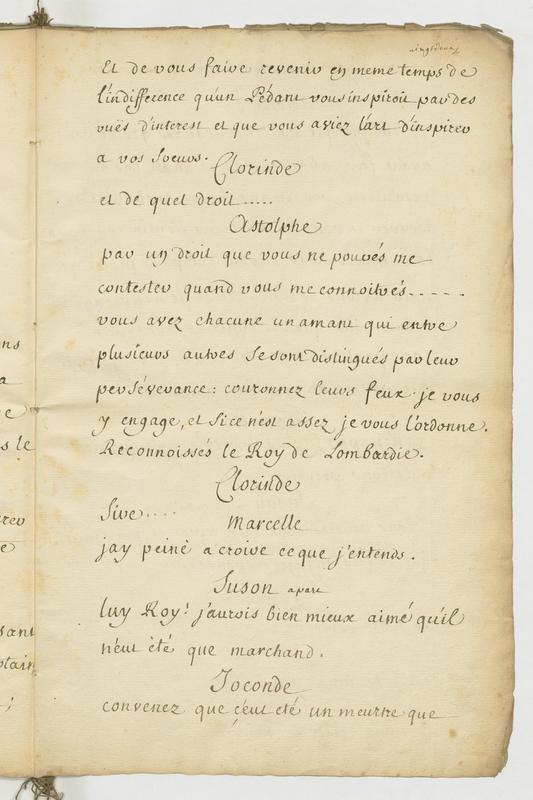 Et de vous faire revenir en meme temps de
l'indifference qu'un Pédant vous inspiroit par des
vuës d'interest et que vous aviez l'art d'inspirer
a vos soeurs.
Clorinde
et de quel droit .....
Astolphe
par un droit que vous ne pouvés me
contester quand vous me connoitrés .....
vous avez chacune un amant qui entre
plusieurs autres se sont distingués par leur
persévérance: couronnez leurs feux. je vous
y engage, et si ce n'est assez je vous l'ordonne.
Reconnoissés le Roy de Lombardie.
Clorinde
Sire ....
Marcelle
jay peinè a croire ce que j'entends.
Suson apart
luy Roy! j'aurois bien mieux aimé qu'il
n'eut été que marchand.
Joconde
convenez que ç'eut eté un meurtre que
ns
a
s le
e
sant